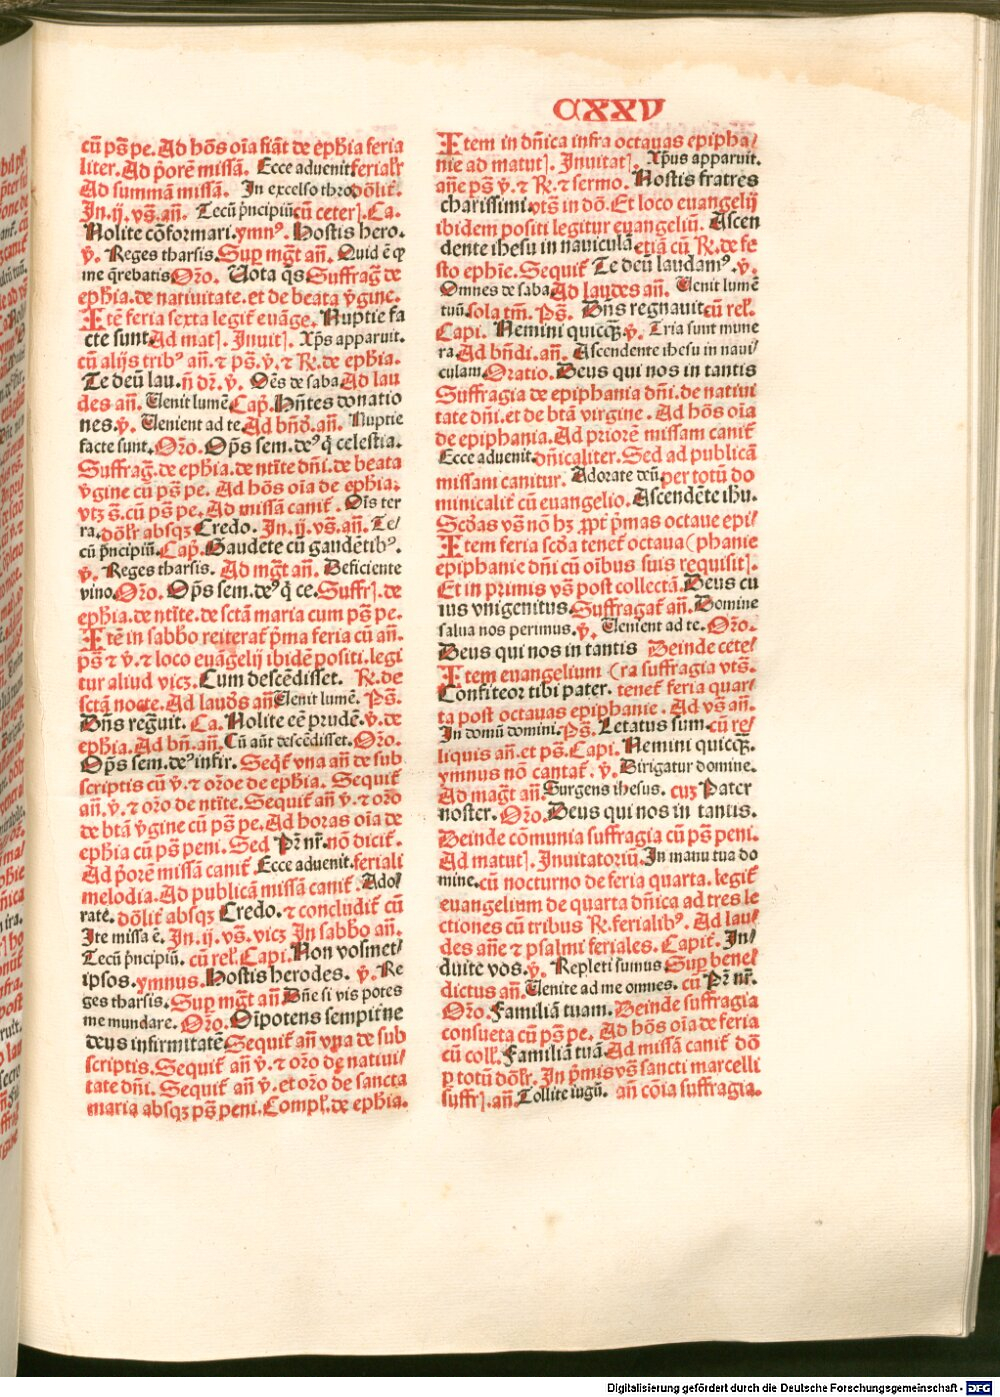 CXXV
cū ps̄ pe. Ad hōs oīa fiāt de ephīa feria
liter. Ad p̄orē missā. Ecce aduenit ferialr̄
Ad summā missā. In excelso thro dōlit̄.
In .ij. vs̄. an̄. Tecū p̄ncipiū cū ceter⁊. Ca.
Nolite cōformari. ymnꝰ. Hostis hero.
v̄. Reges tharsis. Sup mḡt an̄. Quid ē ꝙ
me q̄rebatis Oro. Uota q̄s Suffrag̃ de
ephīa. de natiuitate. et de beata v̄gine.
Itē feria sexta legit̄ euāge. Nuptie fa
cte sunt Ad mat⁊. Jnuit⁊. Xp̄s apparuit.
cū alijs tribꝰ an̄. ⁊ ps̄. v̄. ⁊ R. de ephīa.
Te deū lau. n̄ dr̄. v̄. Oēs de saba Ad lau
des an̄. Uenit lumē Cap̄. Hn̄tes donatio
nes. v̄. Uenient ad te. Ad bn̄d. an̄. Nuptie
facte sunt. Oro. Op̄s sem. deꝰ q̄ celestia.
Suffrag̃. de ephīa. de ntīte dn̄i. de beata
v̄gine cū ps̄ pe. Ad hōs oīa de ephīa.
vtz s̄. cū ps̄ pe. Ad missā canit̄. Oīs ter
ra. dōlr̄ absqꝫ Credo. In .ij. vs̄. an̄. Te/
cū p̄ncipiū. Cap̄. Gaudete cū gaudētibꝰ.
v̄. Reges tharsis. Ad mḡt an̄. Deficiente
vino. Oro. Op̄s sem. deꝰ q̄ ce. Suffr⁊. de
ephīa. de ntīte. de sctā maria cum ps̄ pe.
Itē in sabbo reiterat̄ p̄ma feria cū an̄.
ps̄ ⁊ v̄. ⁊ loco euāgelij ibidē positi. legi
tur aliud vicꝫ. Cum descēdisset. R. de
sctā nocte. Ad laudes an̄ Uenit lumē. Ps̄.
Dn̄s reg̃uit. Ca. Nolite eē prudē. v̄. de
ephīa. Ad bn̄. an̄. Cū aūt descēdisset. Oro.
Op̄s sem. deꝰ infir. Seqt̄ vna an̄ de sub
scriptis cū v̄. ⁊ orōe de ephīa. Sequit̄
an̄. v̄. ⁊ oro de ntīte. Sequit̄ an̄ v̄. ⁊ oro
de btā v̄gine cū ps̄ pe. Ad horas oīa de
ephīa cū ps̄ peni. Sed Pr̄ nr̄. nō dicit̄.
Ad p̄orē missā canit̄ Ecce aduenit. feriali
melodia. Ad publicā missā canit̄. Ado/
rate. dōlit̄ absqꝫ Credo. ⁊ concludit̄ cū
Ite missa ē. In .ij. vs̄. vicꝫ In sabbo an̄.
Tecū p̄ncipiū. cū rel⁊. Capi. Non vosmet/
ipsos. ymnus. Hostis herodes. v̄. Re
ges tharsis. Sup mḡt an̄ Dn̄e si vis potes
me mundare. Oro. Oīpotens sempitne
deus infirmitatē Sequit̄ an̄ vna de sub
scriptis. Sequit̄ an̄ v̄. ⁊ oro de natiui/
tate dn̄i. Sequit̄ an̄ v̄. et oro de sancta
maria absqꝫ ps̄ peni. Compl⁊. de ephīa.
Item in dn̄ica infra octauas epipha/
nie ad matut⁊. Jnuitat⁊. Xp̄us apparuit.
an̄e ps̄ v̄. ⁊ R. ⁊ sermo. Nostis fratres
charissimi. vts̄ in dō. Et loco euangelij
ibidem positi legitur euangeliū. Ascen
dente ihesu in nauiculā etiā cū R. de fe
sto ephīe. Sequit̄ Te deū laudamꝰ. v̄.
Omnes de saba Ad laudes an̄. Uenit lumē
tuū. sola tm̄. Ps̄. Dn̄s regnauit cū rel⁊.
Capi. Nemini quicqꝫ. v̄. Tria sunt mune
ra. Ad bn̄di. an̄. Ascendente ihesu in naui/
culam. Oratio. Deus qui nos in tantis
Suffragia de epiphania dn̄i. de natiui
tate dn̄i. et de btā virgine. Ad hōs oīa
de epiphania. Ad priorē missam canit̄
Ecce aduenit. dn̄icaliter. Sed ad publicā
missam canitur. Adorate deū. per totū do
minicalit̄ cū euangelio. Ascendēte ihu.
Scd̄as vs̄ nō hꝫ xp̄t p̄mas octaue epi/
Item feria scd̄a tenet̄ octaua (phanie
epiphanie dn̄i cū oībus suis requisit⁊.
Et in primis vs̄ post collectā. Deus cu
ius vnigenitus. Suffragat̄ an̄. Domine
salua nos perimus. v̄. Uenient ad te. Oro.
Deus qui nos in tantis Deinde cete/
Item euangelium (ra suffragia vts̄.
Confiteor tibi pater. tenet̄ feria quar/
ta post octauas epiphanie. Ad vs̄ an̄.
In domū domini. Ps̄. Letatus sum. cū re/
liquis an̄. et ps̄. Capi. Nemini quicqꝫ.
ymnus nō cantat̄. v̄. Dirigatur domine.
Ad mag̃t an̄. Surgens ihesus. cuꝫ Pater
noster. Oro. Deus qui nos in tantis.
Deinde cōmunia suffragia cū ps̄ peni.
Ad matut⁊. Jnuitatoriū. In manu tua do
mine. cū nocturno de feria quarta. legit̄
euangelium de quarta dn̄ica ad tres le
ctiones cū tribus R. ferialibꝰ. Ad lau/
des an̄e ⁊ psalmi feriales. Capit̄. In/
duite vos. v̄. Repleti sumus Sup bene/
dictus an̄. Uenite ad me omnes. cū Pr̄ nr̄.
Oro. Familiā tuam. Deinde suffragia
consueta cū ps̄ pe. Ad hōs oīa de feria
cū coll⁊. Familiā tuā Ad missā canit̄ dō
p totū dōlr̄. In p̄mis vs̄ sancti marcelli
suffr⁊. an̄. Tollite iugū. an̄ cōia suffragia.
Digitalisierung gefördert durch die Deutsche Forschungsgemeinschaft - DFG